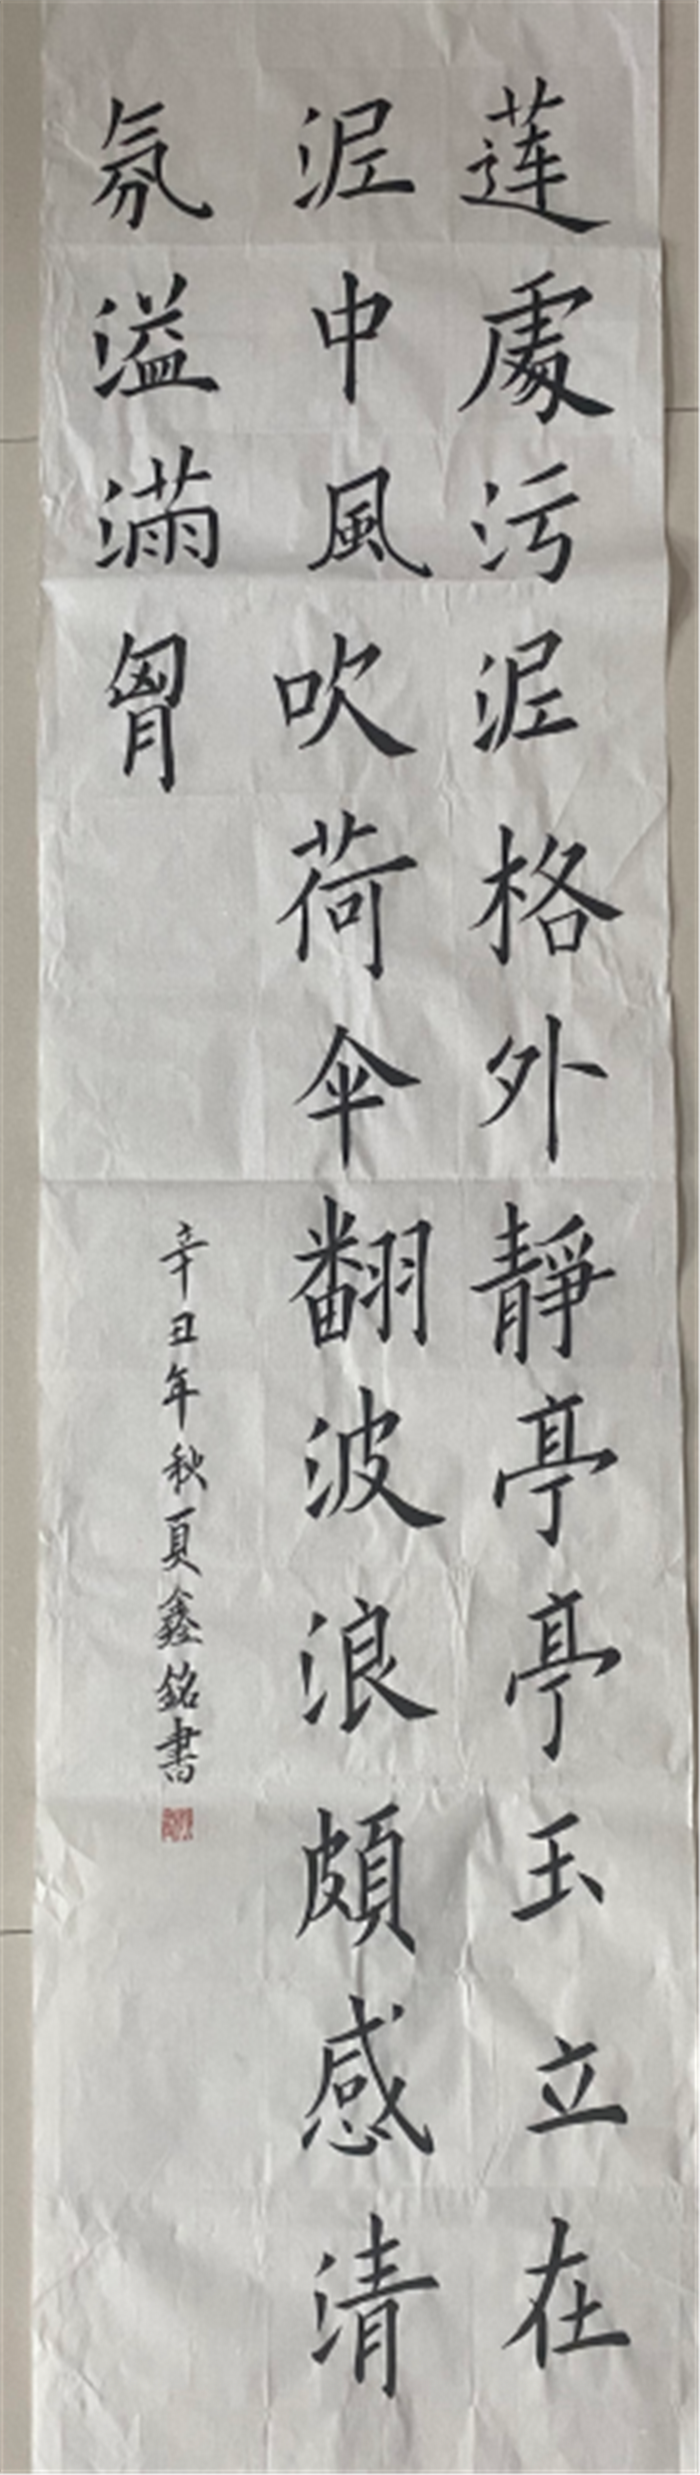 莲處污泥格外靜亭亭玉立在
泥中風吹荷伞翻波浪頗感清
氛溢滿胷
辛丑年秋夏鑫銘書